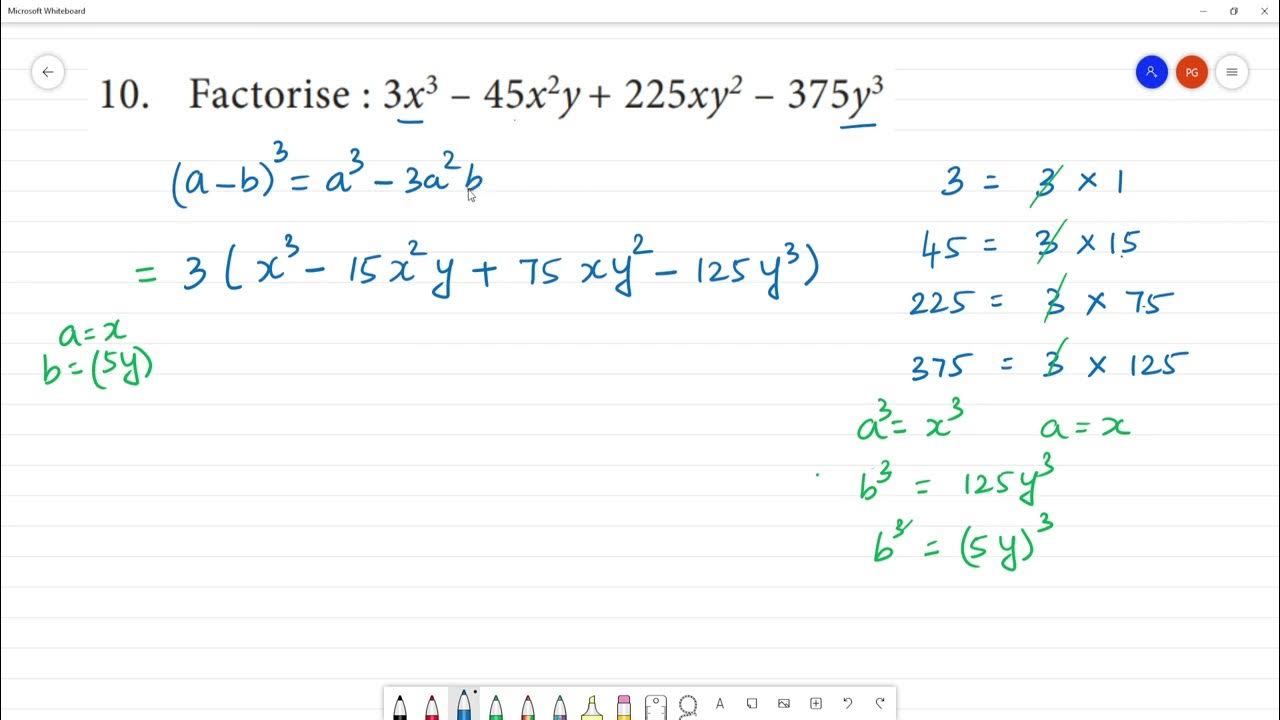 Microsoft Whiteboard
PG
10. Factorise : 3x³ – 45x²y + 225xy² – 375y³
(a – b)³ = a³ – 3a²b
= 3 ( x³ – 15x²y + 75 xy² – 125y³ )
a = x
b = (5y)
3 = 3 × 1
45 = 3 × 15
225 = 3 × 75
375 = 3 × 125
a³ = x³ a = x
b³ = 125y³
b³ = (5y)³
A